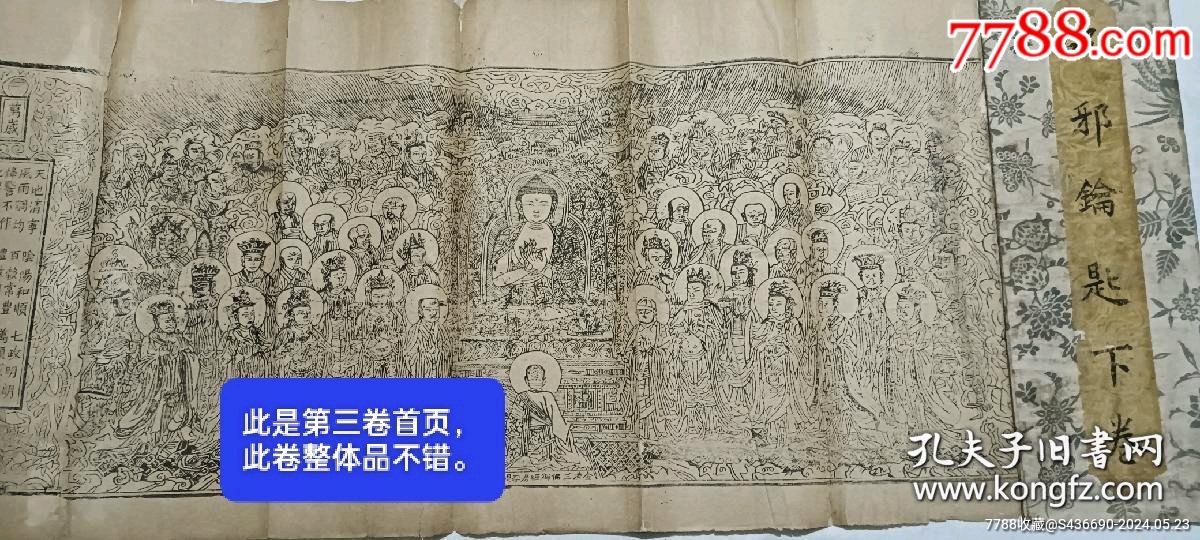 7788.com
邪鑰匙下卷
萬歲
天地清寧
陰陽和順
七政明朗
風雨調均
百穀常豐
此是第三卷首页，
此卷整体品不错。
孔夫子旧書网
www.kongfz.com
7788收藏@S436690-2024.05.23